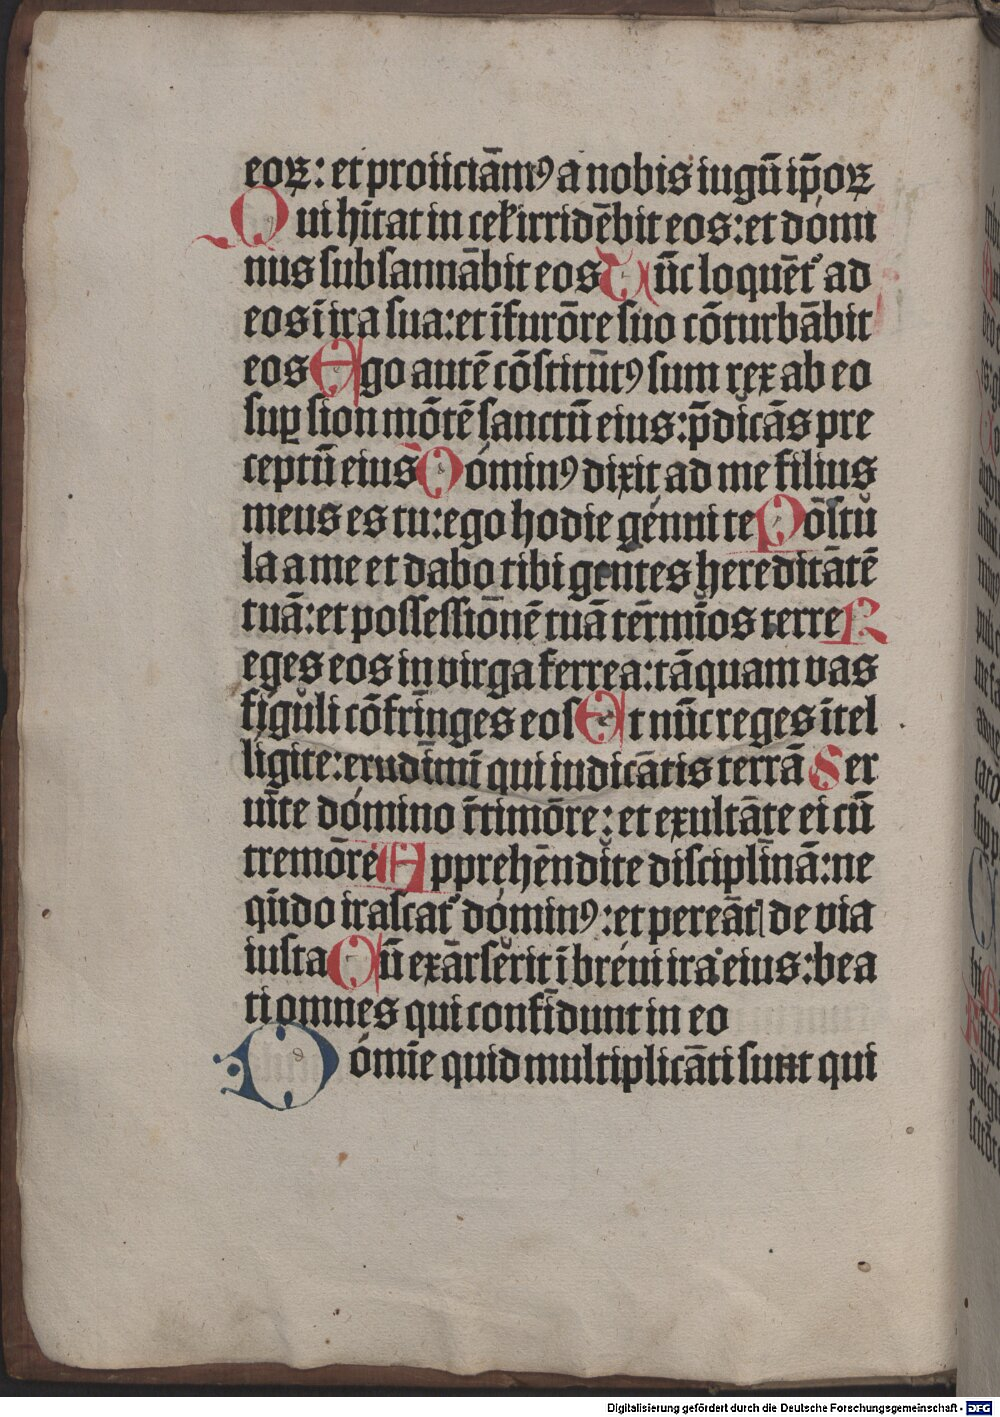 eoꝝ: et proiiciām⁹ a nobis iugū ip̄oꝝ
Qui hītat in cel̄ irridēbit eos: et dómi
nus subsannābit eos Tūc loquēt᷑ ad
eos ī ira sua: et ī furōre suo cōturbābit
eos Ego autē cōstitūt⁹ sum rex ab eo
suꝑ sion mōtē sanctū eius: p̄dicās pre
ceptū eius Dómin⁹ dixit ad me filius
meus es tu: ego hodie génui te Póstu
la a me et dabo tibi gentes hereditātē
tuā: et possessiōnē tuā tērmīos terre R
eges eos in virga ferrea: tāquam vas
figuli cōfrīnges eos Et nūc reges ītel
ligite: erudīmī qui iudicātis terrā Ser
uīte dómino ī timōre: et exultāte ei cū
tremōre Apprehēndite disciplīnā: ne
qn̄do irascat᷑ dómin⁹: et pereāt de via
iusta Cū exārserit ī bréui ira eius: bea
ti omnes qui confīdunt in eo
Dómīe quid multiplicāti sunt qui
Digitalisierung gefördert durch die Deutsche Forschungsgemeinschaft - DFG